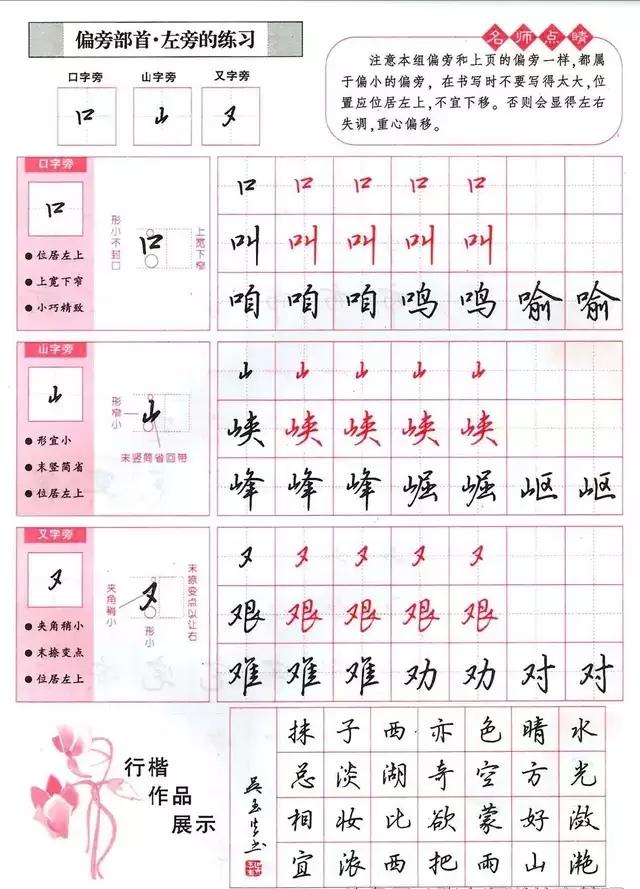 偏旁部首·左旁的练习
口字旁 山字旁 又字旁
口 山 又
名师点睛
注意本组偏旁和上页的偏旁一样,都属
于偏小的偏旁，在书写时不要写得太大,位
置应位居左上,不宜下移。否则会显得左右
失调,重心偏移。
口字旁
口
●位居左上
●上宽下窄
●小巧精致
形小不封口
口
上宽下窄
口 口 口 口 口
叫 叫 叫 叫 叫
咱 咱 咱 鸣 鸣 喻 喻
山字旁
山
●形宜小
●末竖简省
●位居左上
形窄小
山
末竖简省回带
山 山 山 山 山
峡 峡 峡 峡 峡
峰 峰 峰 崛 崛 岖 岖
又字旁
又
●夹角稍小
●末捺变点
●位居左上
夹角稍小
又
形小
末捺变点以让右
又 又 又 又 又
艰 艰 艰 艰 艰
难 难 难 劝 劝 对 对
行楷
作品
展示
水光潋滟
晴方好山
色空蒙雨
亦奇欲把
西湖比西
子淡妆浓
抹总相宜
吴玉生书